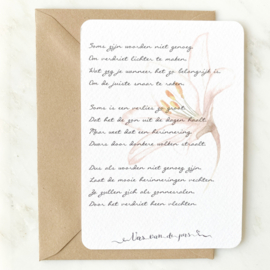 Soms zijn woorden niet genoeg
Om verdriet lichter te maken.
Wat zeg je wanneer het zo belangrijk is
Om de juiste snaar te raken.
Soms is een verlies zo groot
Dat het de zon uit de dagen haalt.
Maar weet dat een herinnering
Dwars door donkere wolken straalt.
Dus als woorden niet genoeg zijn
Laat de mooie herinneringen vechten.
Ze zullen zich als zonnestralen
Door het verdriet heen vlechten.